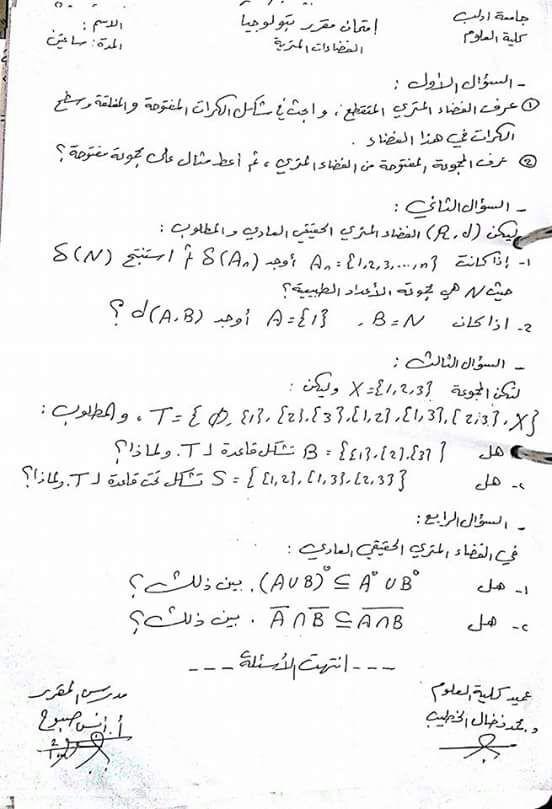 جامعة ادلب
امتحان مقرر تبولوجيا
الاسم:
كلية العلوم
الفضاءات المترية
المدة: ساعتين
- السؤال الأول:
① عرف الفضاء المتري المتقطع، وابحث في شكل الكرات المفتوحة والمغلقة وسطح
الكرات في هذا الفضاء.
② عرف المجموعة المفتوحة من الفضاء المتري، ثم أعط مثال على مجموعة مفتوحة؟
- السؤال الثاني:
ليكن (R,d) الفضاء المتري الحقيقي العادي والمطلوب:
1- إذا كانت An={1,2,3,...,n} أوجد δ(An) ثم استنتج δ(N)
حيث N هي مجموعة الأعداد الطبيعية؟
2- اذا كان B=N، A={1} أوجد d(A,B)؟
- السؤال الثالث:
لتكن المجموعة X={1,2,3} وليكن:
T={φ,{1},{2},{3},{1,2},{1,3},{2,3},X}، والمطلوب:
هل B={{1},{2},{3}} تشكل قاعدة لـ T. ولماذا؟
2- هل S={{1,2},{1,3},{2,3}} تشكل تحت قاعدة لـ T. ولماذا؟
- السؤال الرابع:
في الفضاء المتري الحقيقي العادي:
1- هل (A∪B)° ⊆ A° ∪ B°. بين ذلك؟
2- هل A̅ ∩ B̅ ⊆ A̅∩̅B̅. بين ذلك؟
--- انتهت الأسئلة ---
عميد كلية العلوم
مدرس المقرر
د. محمد نضال الخطيب
أ. أنس صبوح